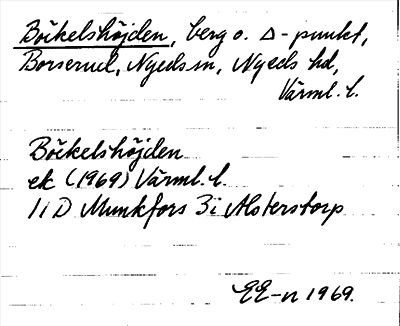 Böckelshöjden, berg o. △-punkt,
Borserud, Nyeds sn, Nyeds hd,
Värml. l.
Böckelshöjden
ek (1969) Värml. l.
11 D Munkfors 3i Alsterstorp
EE-n 1969.